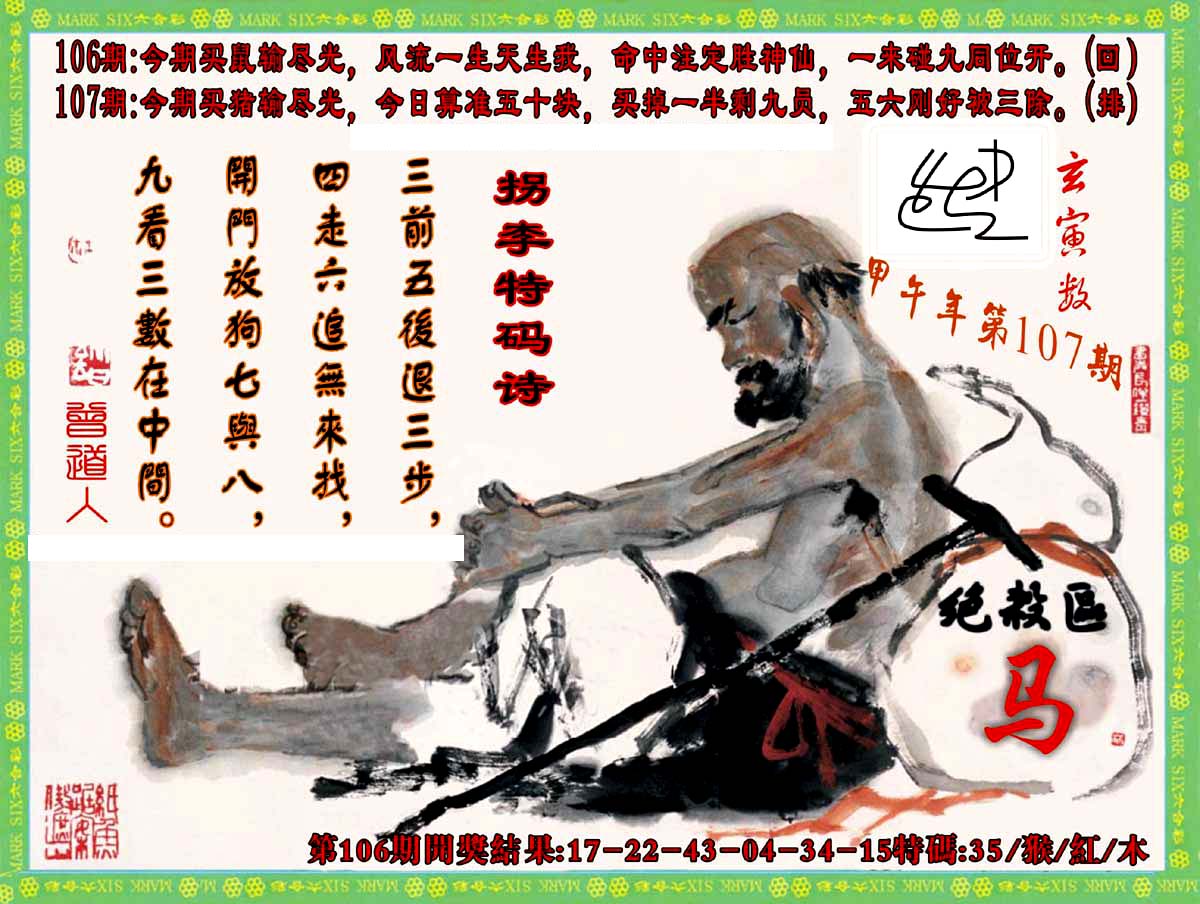 MARK SIX六合彩
106期:今期买鼠输尽光，风流一生天生我，命中注定胜神仙，一来碰九同位开。(回)
107期:今期买猪输尽光，今日算准五十块，买掉一半剩九员，五六刚好被三除。(排)
玄寅数
甲午年第107期
拐李特码诗
三前五後退三步，
四走六追無來找，
開門放狗七與八，
九看三數在中間。
曾道人
绝殺区
马
第106期開獎結果:17-22-43-04-34-15特碼:35/猴/紅/木